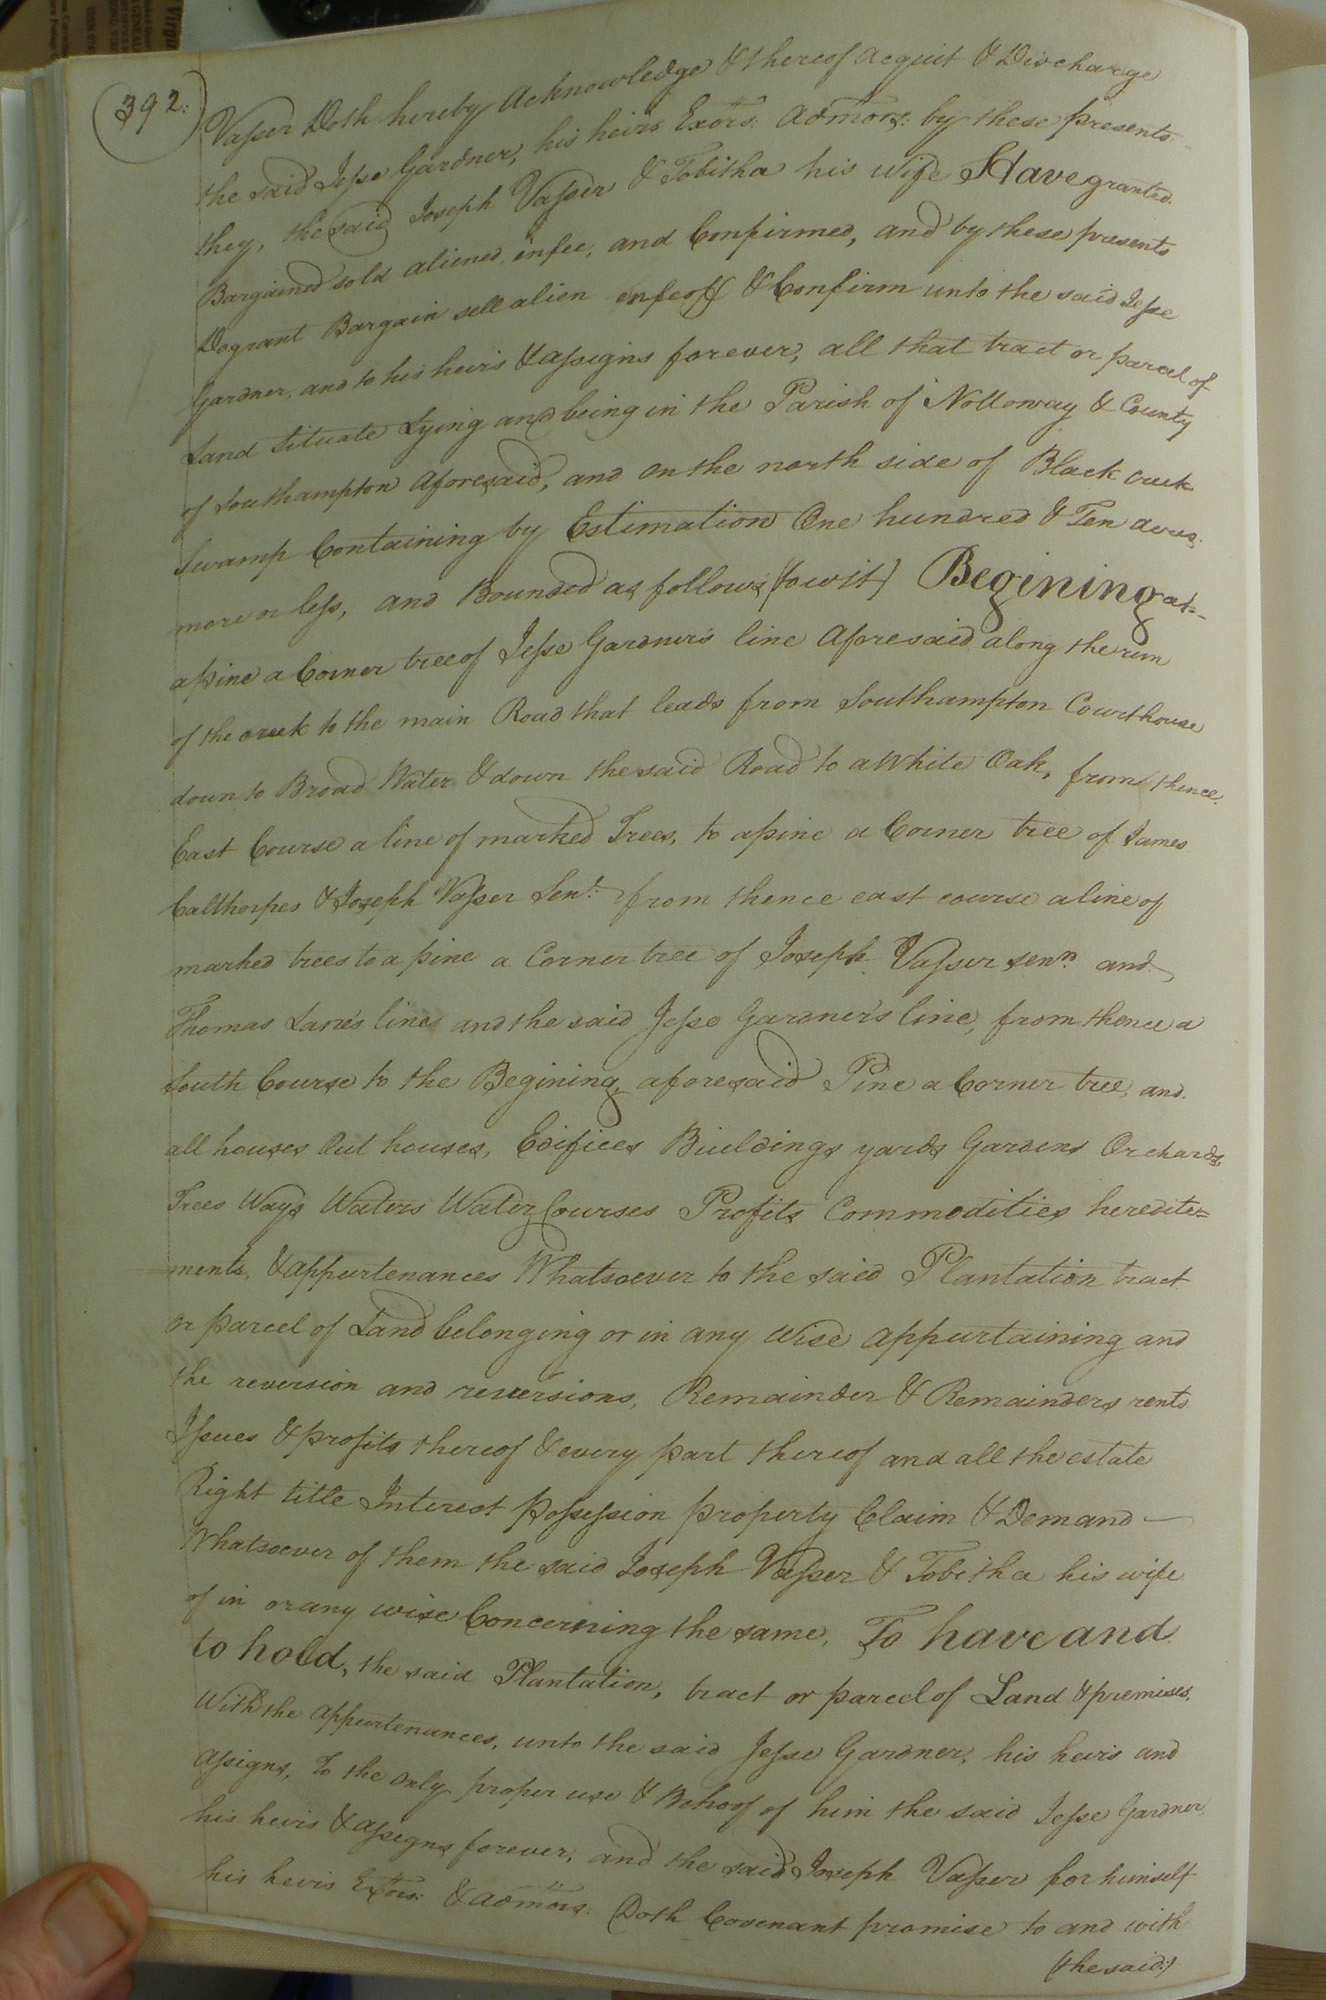 392.
Vasser Doth hereby Acknowledge & thereof acquit & Discharge
the said Jesse Gardner, his heirs Exors: Admors: by these presents
they, the said Joseph Vasser & Tobitha his wife Have granted
Bargained sold aliened, enfee, and Confirmed, and by these presents
Do grant Bargain sell alien enfeoff & Confirm unto the said Jesse
Gardner, and to his heirs & assigns forever, all that tract or parcel of
Land Situate Lying and being in the Parish of Nottoway & County
of Southampton Aforesaid, and on the north side of Black creek
Swamp Containing by Estimation One hundred & Ten acres
more or less, and Bounded as follows (to wit) Begining at
a pine a Corner tree of Jesse Gardner's line Aforesaid along the run
of the creek to the main Road that leads from Southampton Courthouse
down to Broad Water & down the said Road to a White Oak, from thence
East Course a line of marked Trees, to a pine a Corner tree of James
Calthorpes & Joseph Vasser Senr: from thence east course a line of
marked trees to a pine a Corner tree of Joseph Vasser senr. and
Thomas Lane's line and the said Jesse Gardner's line, from thence a
South Course to the Begining, aforesaid Pine a Corner tree, and
all houses Out houses, Edifices Buildings yards Gardens Orchards,
Trees Ways Waters Water Courses Profits Commodities heredite=
ments, & appurtenances Whatsoever to the said Plantation tract
or parcel of Land belonging or in any wise appurtaining and
the reversion and reversions, Remainder & Remainders rents
Issues & profits thereof & every part thereof and all the estate
Right title Interest Possession property Claim & Demand —
Whatsoever of them the said Joseph Vasser & Tobitha his wife
of in or any wise Concerning the same, To have and
to hold, the said Plantation, tract or parcel of Land & premises,
With the appurtenances, unto the said Jesse Gardner, his heirs and
assigns, To the only proper use & Behoof of him the said Jesse Gardner,
his heirs & assigns forever, and the said Joseph Vasser for himself
his heirs Exors: & admors: Doth Covenant promise to and with
(the said:)